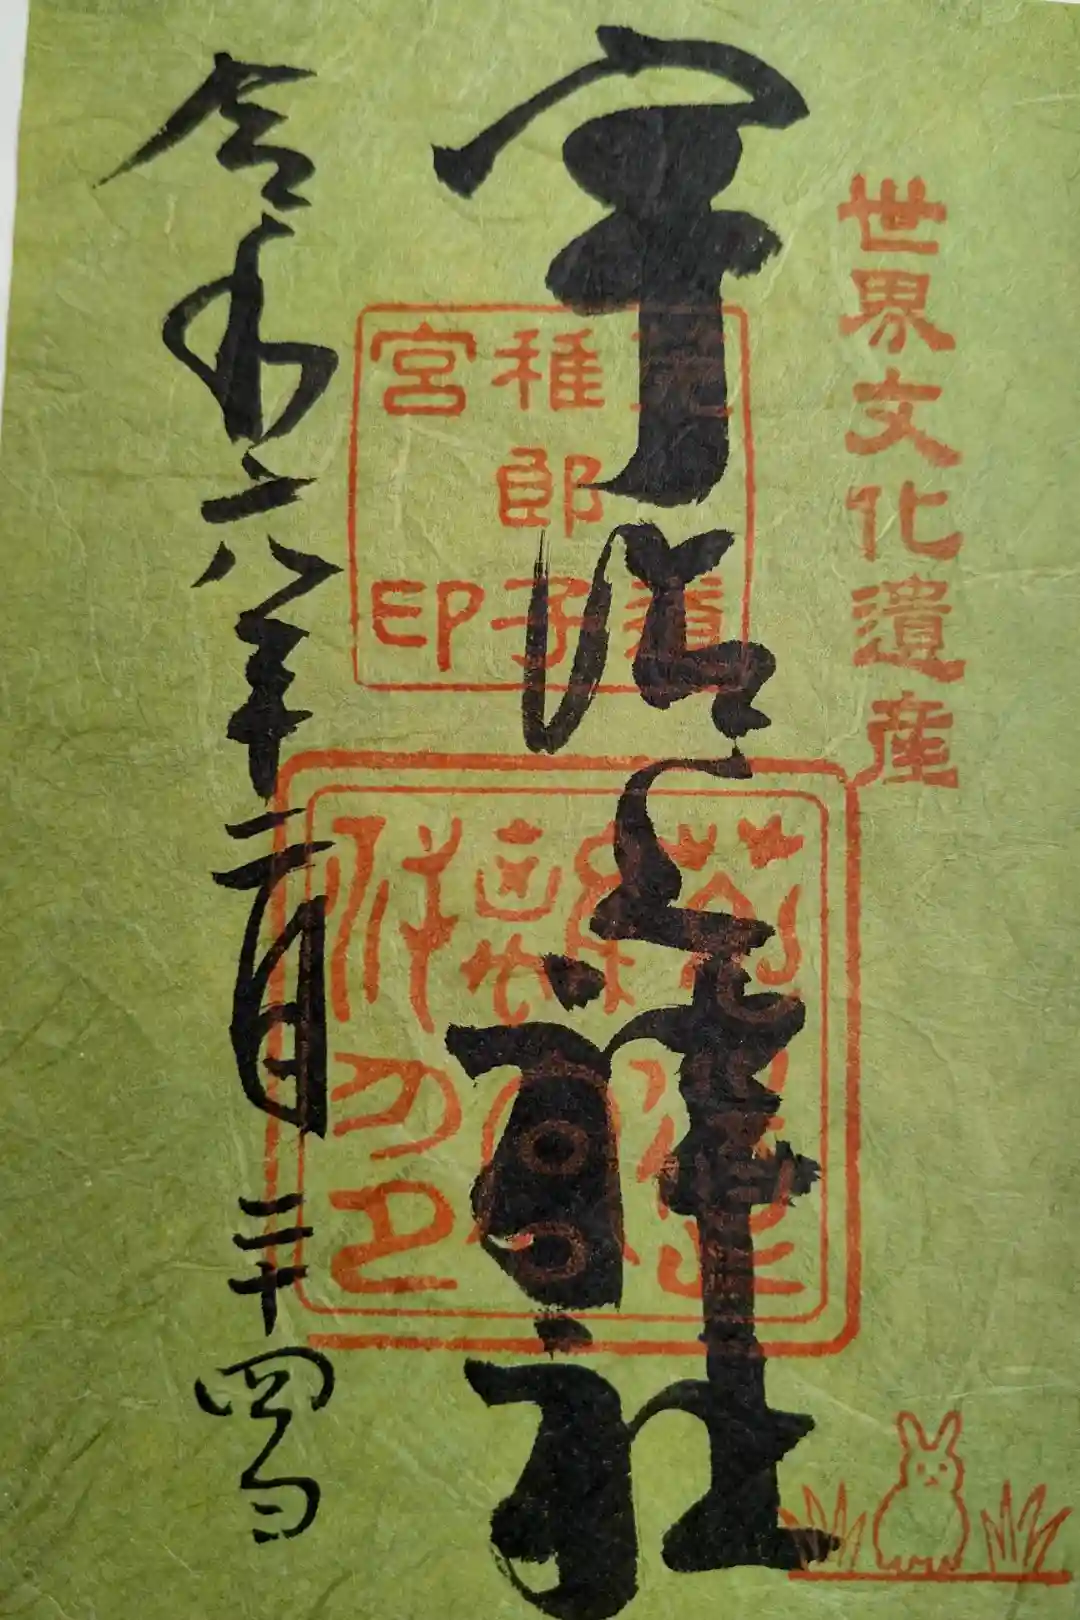 世界文化遺産
宇治上神社
道
稚郎子
宮印
令和六年二月二十四日